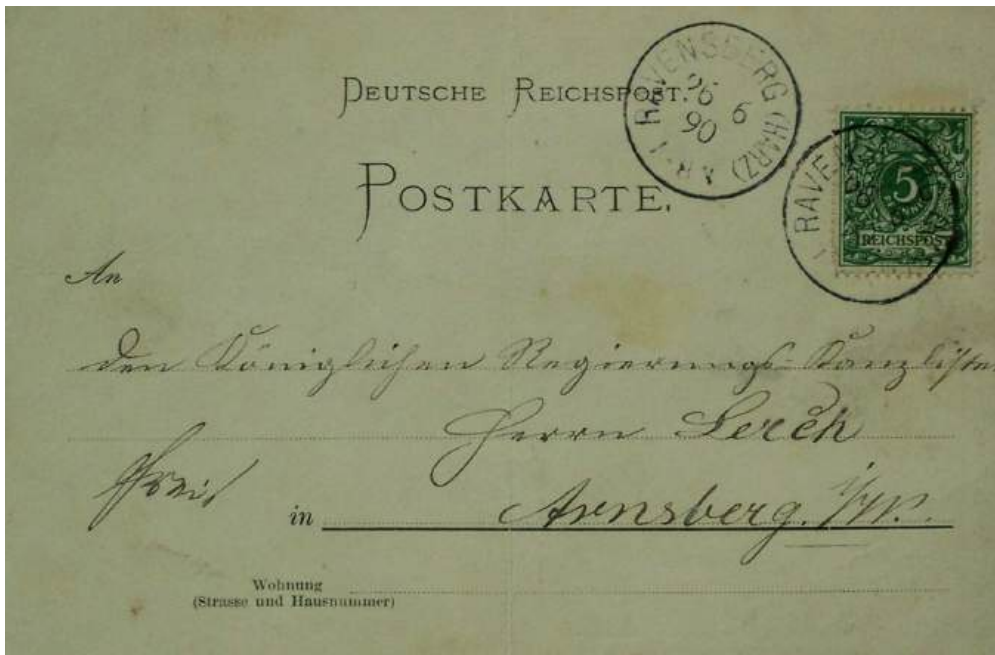 DEUTSCHE REICHSPOST.
RAVENSBERG (HARZ)
26 6
90
POSTKARTE.
5
REICHSPOST
RAVEN
An
den Königlichen Regierungs-Kanzlisten
Herrn Lerch
Frei
in Arnsberg. i/W.
Wohnung
(Strasse und Hausnummer)